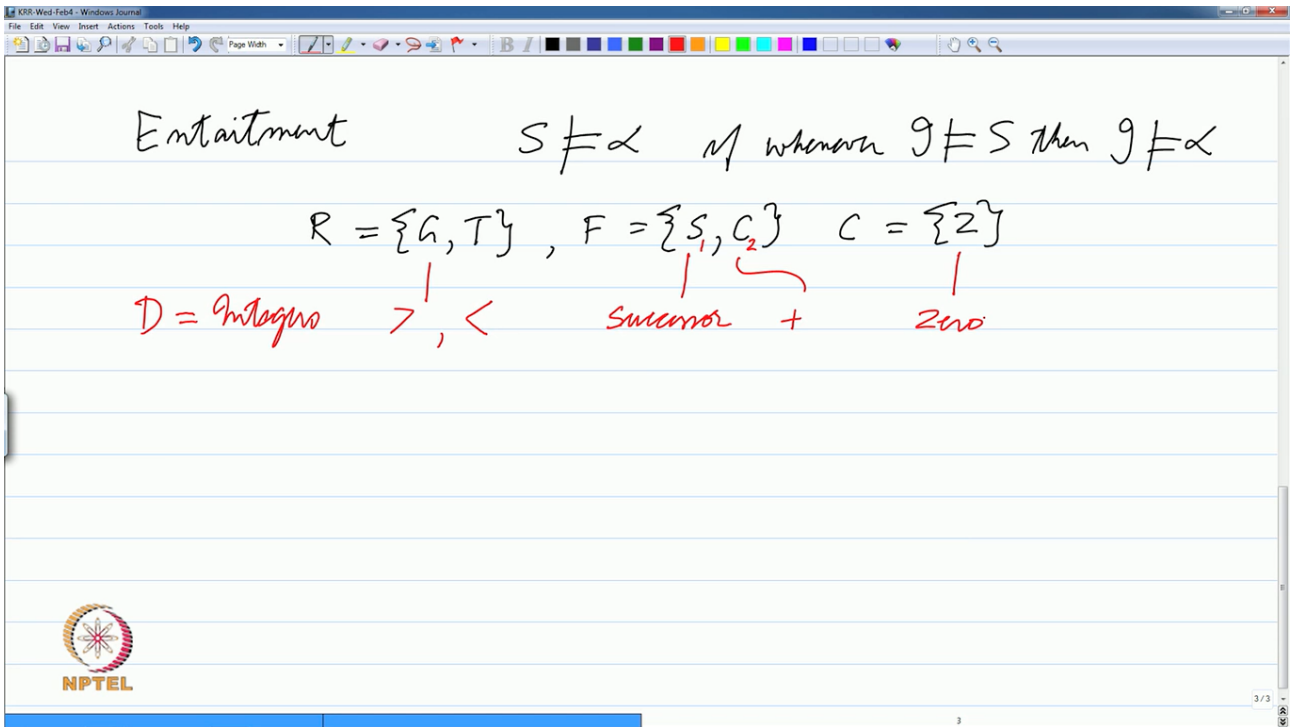 KRR-Wed-Feb4 - Windows Journal
File Edit View Insert Actions Tools Help
Page Width
B I
Entailment S ⊨ α if whenever I ⊨ S then I ⊨ α
R = {G, T} , F = {S₁, C₂} C = {Z}
D = Integers > , < successor + zero
NPTEL
3 / 3
3